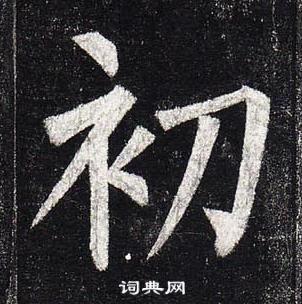 初
词典网